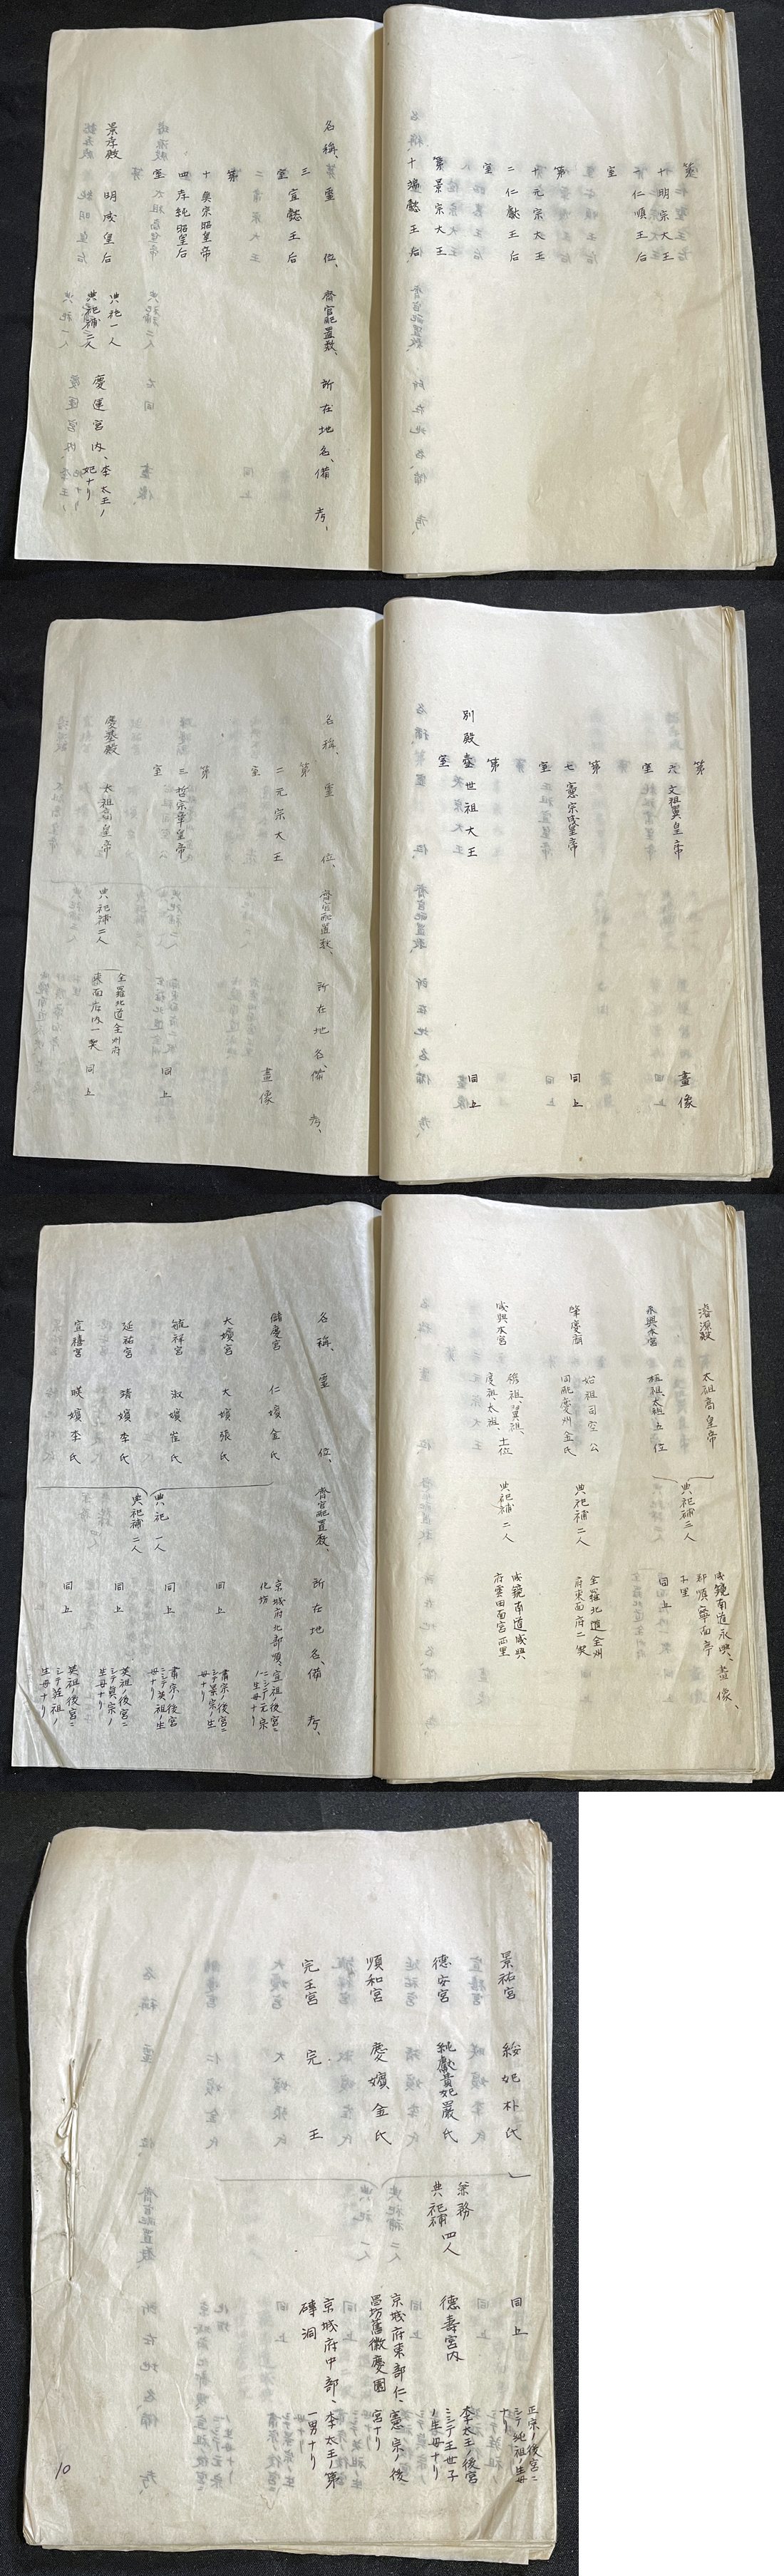 第
十 明宗大王
一 仁順王后
室
第
十 元宗大王
二 仁獻王后
室
第 景宗大王
十 端懿王后
名稱、靈位、齊官配置数、所在地名、備考、
三 宣懿王后
室
第
十 眞宗昭皇帝
四 孝純昭皇后
室
景孝殿 明成皇后 典祀一人 典祀補二人 慶運宮内、李太王ノ妃ナリ
第
六 文祖翼皇帝 畫像
室
第
七 憲宗成皇帝 同上
室
第
別殿 壹 世祖大王 同上
室
名稱、靈位、齊官配置数、所在地名、備考、
第
二 元宗大王 畫像
室
第
三 哲宗章皇帝 同上
室
慶基殿 太祖高皇帝 典祀補二人 全羅北道全州府 府内一契 同上
濬源殿 太祖高皇帝 典祀補三人 咸鏡南道永興郡順寧面亭子里 畫像、
永興本宮 桓祖、太祖 五位 同上
肇慶廟 始祖司空公 同配慶州金氏 典祀補二人 全羅北道全州府東面府二契
咸興本宮 穆祖、翼祖、度祖、太祖、十位 典祀補二人 咸鏡南道咸興府雲田面宮西里
名稱、靈位、齊官配置数、所在地名、備考、
儲慶宮 仁嬪金氏 京城府北部順化坊 宣祖ノ後宮ニシテ元宗ノ生母ナリ
大嬪宮 大嬪張氏 同上 肅宗ノ後宮ニシテ景宗ノ生母ナリ
毓祥宮 淑嬪崔氏 典祀一人 典祀補二人 同上 肅宗ノ後宮ニシテ英祖ノ生母ナリ
延祐宮 靖嬪李氏 同上 英祖ノ後宮ニシテ眞宗ノ生母ナリ
宣禧宮 暎嬪李氏 同上 英祖ノ後宮ニシテ莊祖ノ生母ナリ
景祐宮 綏妃朴氏 同上 正宗ノ後宮ニシテ純祖ノ生母ナリ
德安宮 純獻貴妃嚴氏 兼務 典祀補四人 德壽宮内 李太王ノ後宮ニシテ王世子ノ生母ナリ
順和宮 慶嬪金氏 京城府東部仁昌坊舊徽慶園 憲宗ノ後宮ナリ
完王宮 完王 京城府中部、磚洞 李太王ノ第一男ナリ
10